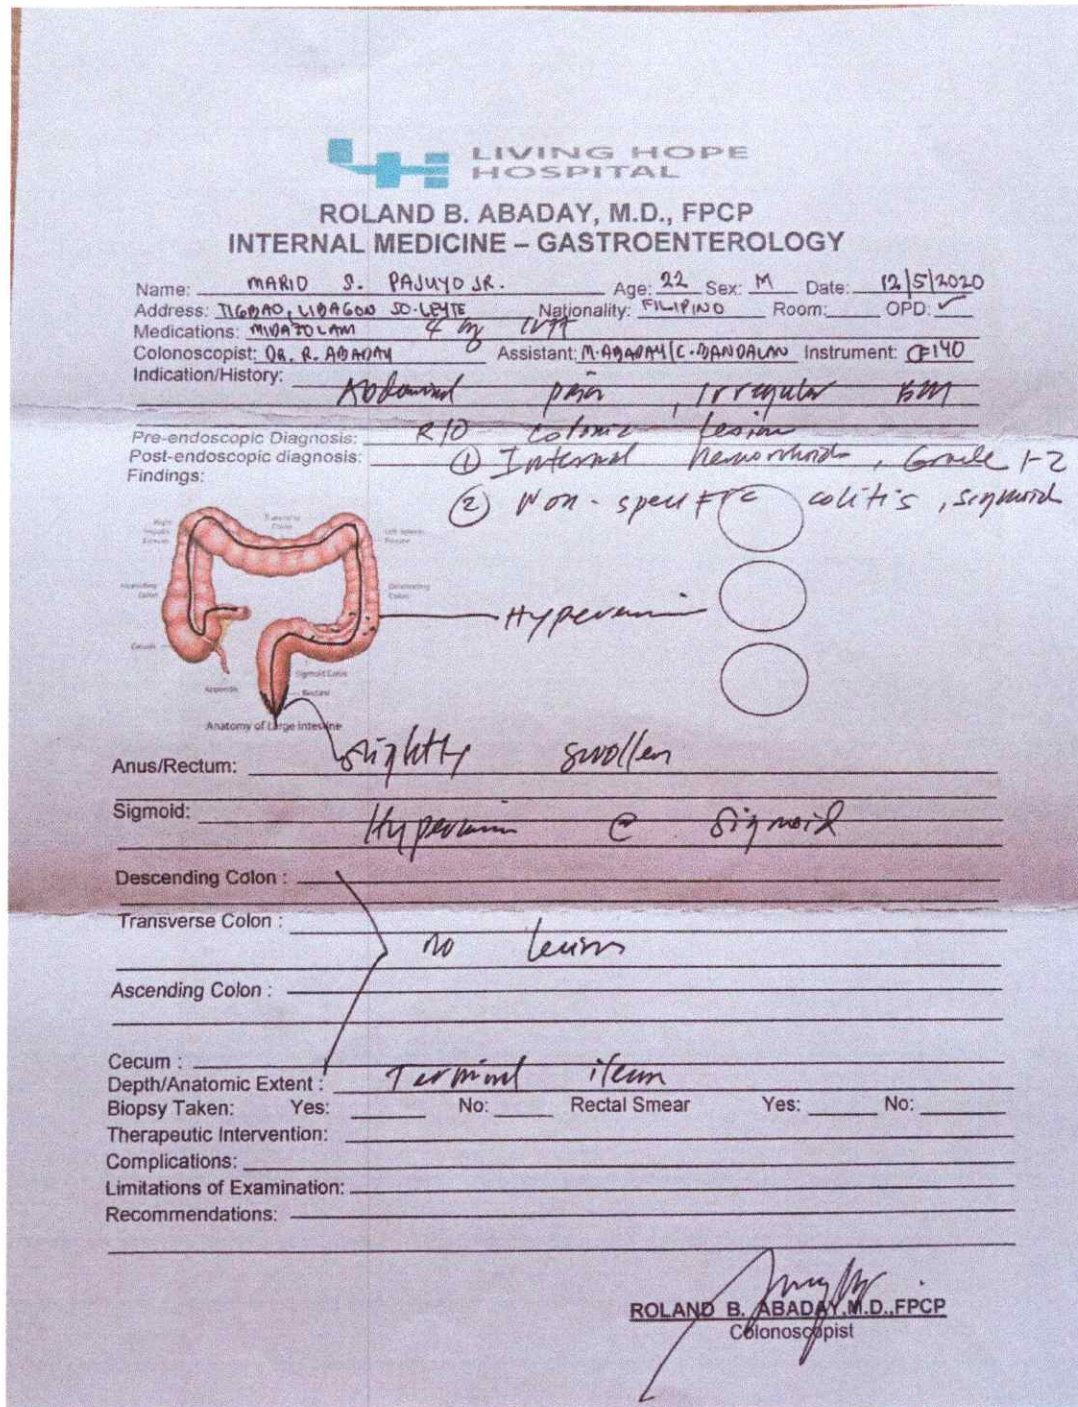 LIVING HOPE
HOSPITAL
ROLAND B. ABADAY, M.D., FPCP
INTERNAL MEDICINE – GASTROENTEROLOGY
Name: MARIO S. PAJUYO JR. Age: 22 Sex: M Date: 12/5/2020
Address: TIGBAO, LIBAGON SO. LEYTE Nationality: FILIPINO Room: OPD: ✓
Medications: MIDAZOLAM 4 mg
Colonoscopist: DR. R. ABADAY Assistant: M. ABADAY/C. DANDALAN Instrument: CF140
Indication/History: Abdominal pain, Irregular BM
Pre-endoscopic Diagnosis: R/O colonic lesion
Post-endoscopic diagnosis: ① Internal hemorrhoids, Grade 1-2
Findings:
② Non-specific colitis, sigmoid
Right Hepatic Flexure
Transverse Colon
Left Splenic Flexure
Ascending Colon
Descending Colon
Hyperemia
Cecum
Sigmoid Colon
Appendix
Rectum
Anatomy of Large Intestine
Anus/Rectum: slightly swollen
Sigmoid: Hyperemia @ Sigmoid
Descending Colon :
Transverse Colon :
no lesion
Ascending Colon :
Cecum :
Depth/Anatomic Extent : Terminal ileum
Biopsy Taken: Yes: No: Rectal Smear Yes: No:
Therapeutic Intervention:
Complications:
Limitations of Examination:
Recommendations:
ROLAND B. ABADAY,M.D.,FPCP
Colonoscopist